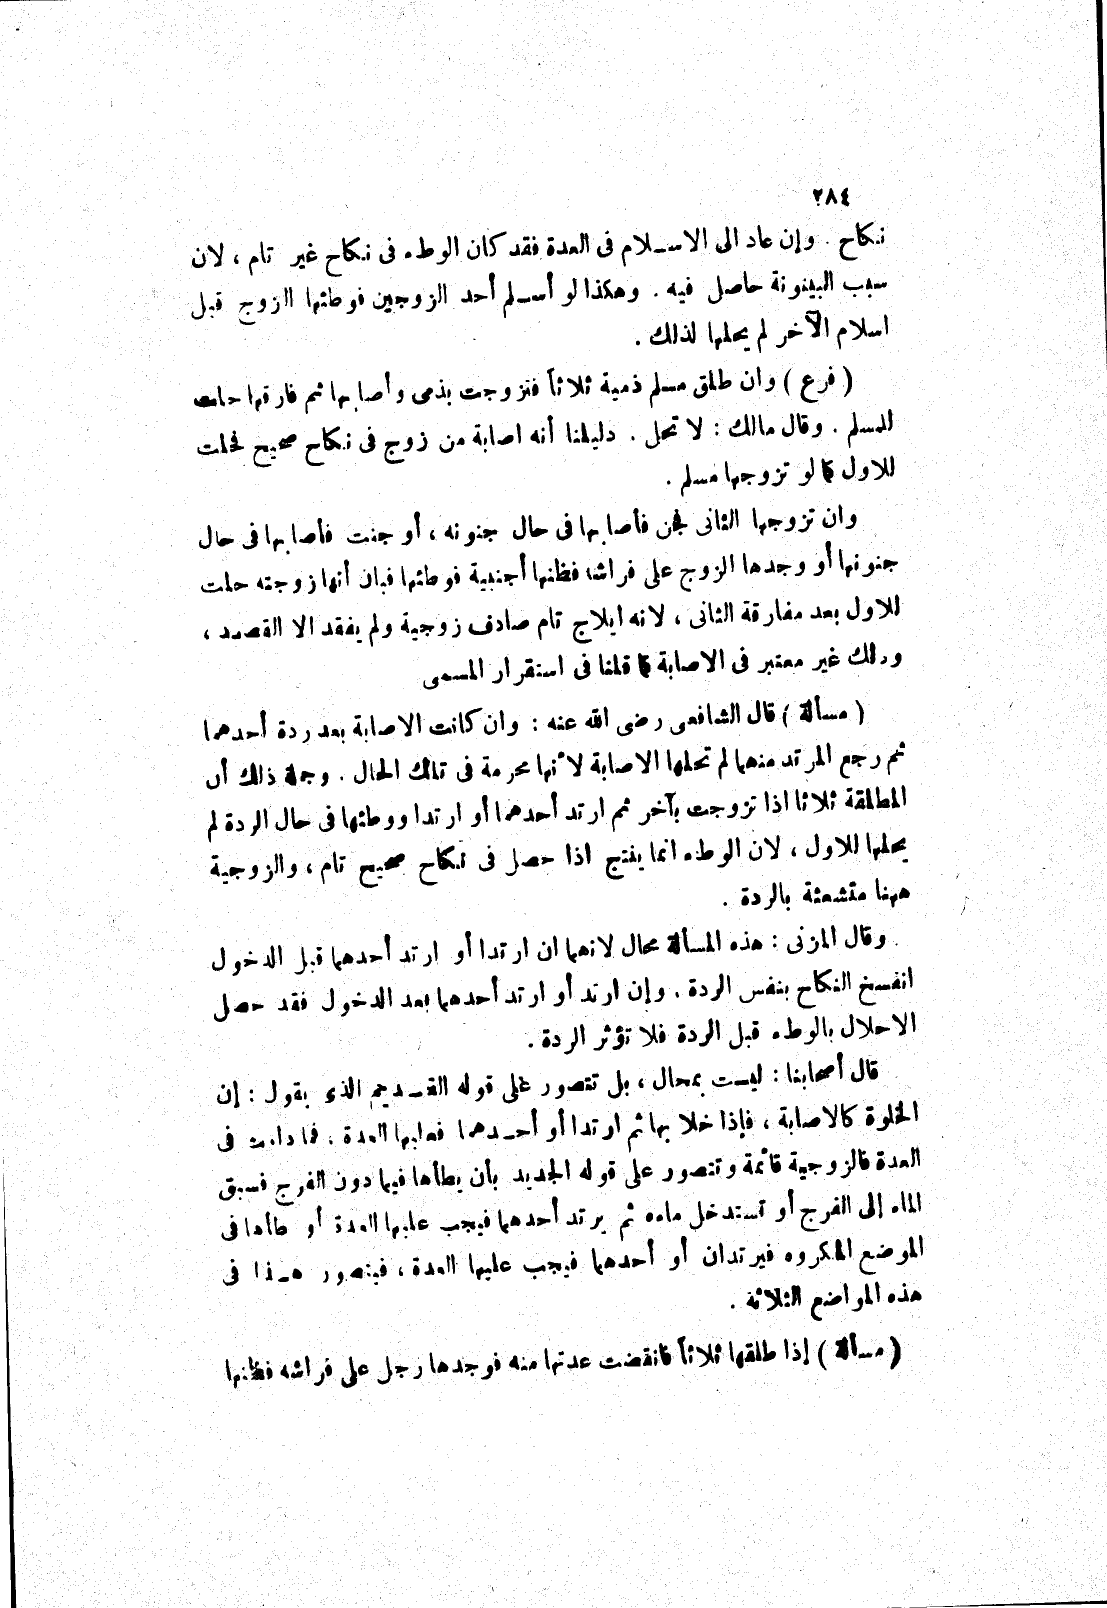 ٢٨٤
نكاح . وإن عاد الى الاسلام فى العدة فقد كان الوطء فى نكاح غير تام ، لان
سبب البينونة حاصل فيه . وهكذا لو أسلم أحد الزوجين فوطئها الزوج قبل
اسلام الآخر لم يحلها لذلك .
( فرع ) وان طلق مسلم ذمية ثلاثاً فتزوجت بذمى وأصابها ثم فارقها حلت
للمسلم . وقال مالك : لا تحل . دليلنا أنه اصابة من زوج فى نكاح صحيح فحلت
للاول كما لو تزوجها مسلم .
وان تزوجها الثانى فجن فأصابها فى حال جنونه ، أو جنت فأصابها فى حال
جنونها أو وجدها الزوج على فراشه فظنها أجنبية فوطئها فبان أنها زوجته حلت
للاول بعد مفارقة الثانى ، لانه ايلاج تام صادف زوجية ولم يفقد الا القصد ،
وذلك غير معتبر فى الاصابة كما قلنا فى استقرار المسمى
( مسألة ) قال الشافعى رضى الله عنه : وان كانت الاصابة بعد ردة أحدهما
ثم رجع المرتد منهما لم تحلها الاصابة لأنها محرمة فى تلك الحال . وجملة ذلك أن
المطلقة ثلاثا اذا تزوجت بآخر ثم ارتد أحدهما أو ارتدا ووطئها فى حال الردة لم
يحلها للاول ، لان الوطء انما ينتج اذا حصل فى نكاح صحيح تام ، والزوجية
ههنا متشعثة بالردة .
وقال المزنى : هذه المسألة محال لانهما ان ارتدا أو ارتد أحدهما قبل الدخول
انفسخ النكاح بنفس الردة . وإن ارتد أو ارتد أحدهما بعد الدخول فقد حصل
الاحلال بالوطء قبل الردة فلا تؤثر الردة .
قال أصحابنا : ليست بمحال ، بل تتصور على قوله القديم الذى يقول : إن
الخلوة كالاصابة ، فإذا خلا بها ثم ارتدا أو أحدهما فعليها العدة ، فما دامت فى
العدة فالزوجية قائمة وتتصور على قوله الجديد بأن يطأها فيما دون الفرج فسبق
الماء إلى الفرج أو تستدخل ماءه ثم يرتد أحدهما فيجب عليها العدة أو طأها فى
الموضع المكروه فيرتدان أو أحدهما فيجب عليها العدة ، فيتصور هذا فى
هذه المواضع الثلاثة .
( مسألة ) إذا طلقها ثلاثاً فانقضت عدتها منه فوجدها رجل على فراشه فظنها